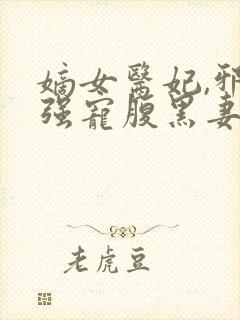 嫡女醫妃,邪
强寵腹黑妻
老虎豆